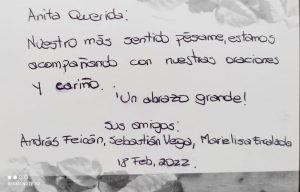 Anita Querida:
Nuestro más sentido pésame, estamos
acompañando con nuestras oraciones
y cariño.
¡Un abrazo grande!
Sus amigos:
András Feicán, Sebastián Vega, Marielisa Encalada
18 Feb, 2022.